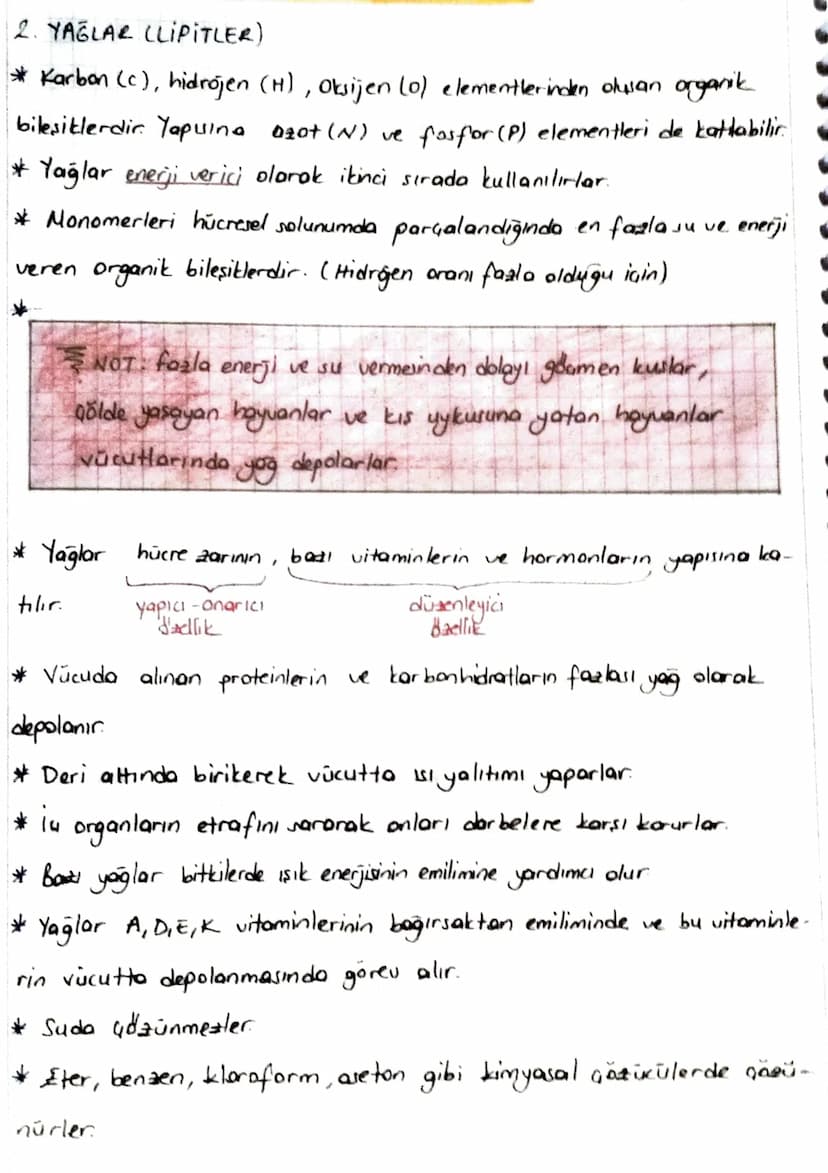 2. YAĞLAR (LİPİTLER)
* Karbon (C), hidrojen (H), Oksijen (O) elementlerinden oluşan organik
bileşiklerdir. Yapısına azot (N) ve fosfor (P) elementleri de katılabilir.
* Yağlar enerji verici olarak ikinci sırada kullanılırlar.
* Monomerleri hücresel solunumda parçalandığında en fazla su ve enerji
veren organik bileşiklerdir. (Hidrojen oranı fazla olduğu için)
*
NOT: fazla enerji ve su vermesinden dolayı göçmen kuşlar,
çölde yaşayan hayvanlar ve kış uykusuna yatan hayvanlar
vücutlarında yağ depolarlar.
* Yağlar hücre zarının, bazı vitaminlerin ve hormonların yapısına ka-
tılır. yapıcı-onarıcı özellik düzenleyici özellik
* Vücuda alınan proteinlerin ve karbonhidratların fazlası yağ olarak
depolanır.
* Deri altında birikerek vücutta ısı yalıtımı yaparlar.
* İç organların etrafını sararak onları darbelere karşı korurlar.
* Bazı yağlar bitkilerde ışık enerjisinin emilimine yardımcı olur
* Yağlar A, D, E, K vitaminlerinin bağırsaktan emiliminde ve bu vitaminle-
rin vücutta depolanmasında görev alır.
* Suda çözünmezler.
* Eter, benzen, kloroform, aseton gibi kimyasal çözücülerde çözü-
nürler.